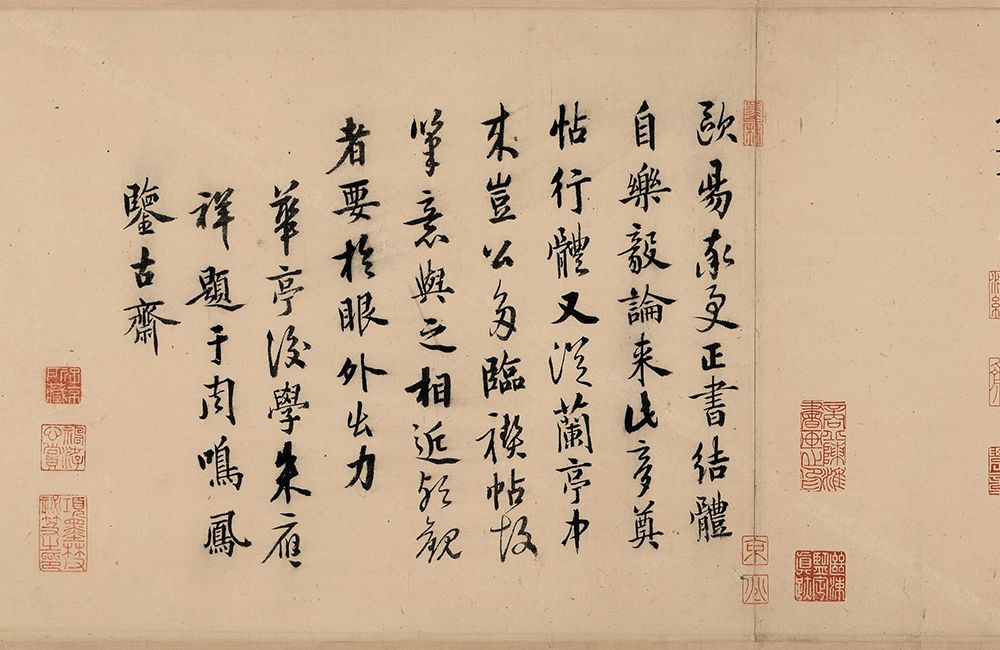 歐昜率更正書結體
自樂毅論来此夢奠
帖行體又從蘭亭中
来豈公多臨禊帖故
筆意與之相近歟觀
者要於眼外出力
華亭後學朱應
祥題于周鳴鳳
鑒古齋